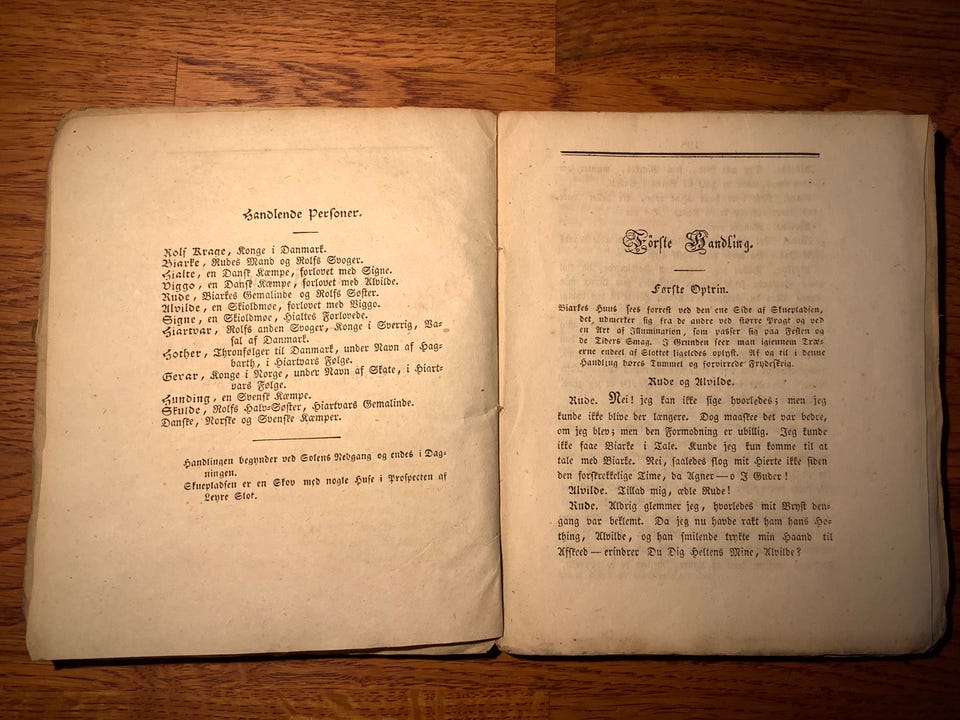 Handlende Personer.
Rolf Krage, Konge i Danmark.
Biarke, Rudes Mand og Rolfs Svoger.
Hialte, en Dansk Kæmpe, forlovet med Signe.
Viggo, en Dansk Kæmpe, forlovet med Alvilde.
Rude, Biarkes Gemalinde og Rolfs Søster.
Alvilde, en Skioldmøe, forlovet med Viggo.
Signe, en Skioldmøe, Hialtes Forlovede.
Hiartvar, Rolfs anden Svoger, Konge i Sverrig, Va-
sal af Danmark.
Hother, Thronfølger til Danmark, under Navn af Hag-
barth, i Hiartvars Følge.
Gerar, Konge i Norge, under Navn af Skate, i Hiart-
vars Følge.
Hunding, en Svensk Kæmpe.
Skulde, Rolfs Halv-Søster, Hiartvars Gemalinde.
Danske, Norske og Svenske Kæmper.
Handlingen begynder ved Solens Nedgang og endes i Dag-
ningen.
Skuepladsen er en Skov med nogle Huse i Prospecten af
Leyre Slot.
Første Handling.
Første Optrin.
Biarkes Huus sees forrest ved den ene Side af Skuepladsen,
det udmerker sig fra de andre ved større Pragt og ved
en Art af Illumination, som passer sig paa Festen og
de Tiders Smag. I Grunden seer man igiennem Træ-
erne endeel af Slottet ligeledes oplyst. Af og til i denne
Handling høres Tummel og forvirrede Frydeskrig.
Rude og Alvilde.
Rude. Nei! jeg kan ikke sige hvorledes; men jeg
kunde ikke blive der længere. Dog maaskee det var bedre,
om jeg blev; men den Formodning er ubillig. Jeg kunde
ikke faae Biarke i Tale. Kunde jeg kun komme til at
tale med Biarke. Nei, saaledes slog mit Hierte ikke siden
den forskrekkelige Time, da Agner — o I Guder!
Alvilde. Tillad mig, ædle Rude!
Rude. Aldrig glemmer jeg, hvorledes mit Bryst den-
gang var beklemt. Da jeg nu havde rakt ham hans Ho-
thing, Alvilde, og han smilende trykte min Haand til
Afskeed — erindrer Du Dig Heltens Mine, Alvilde?